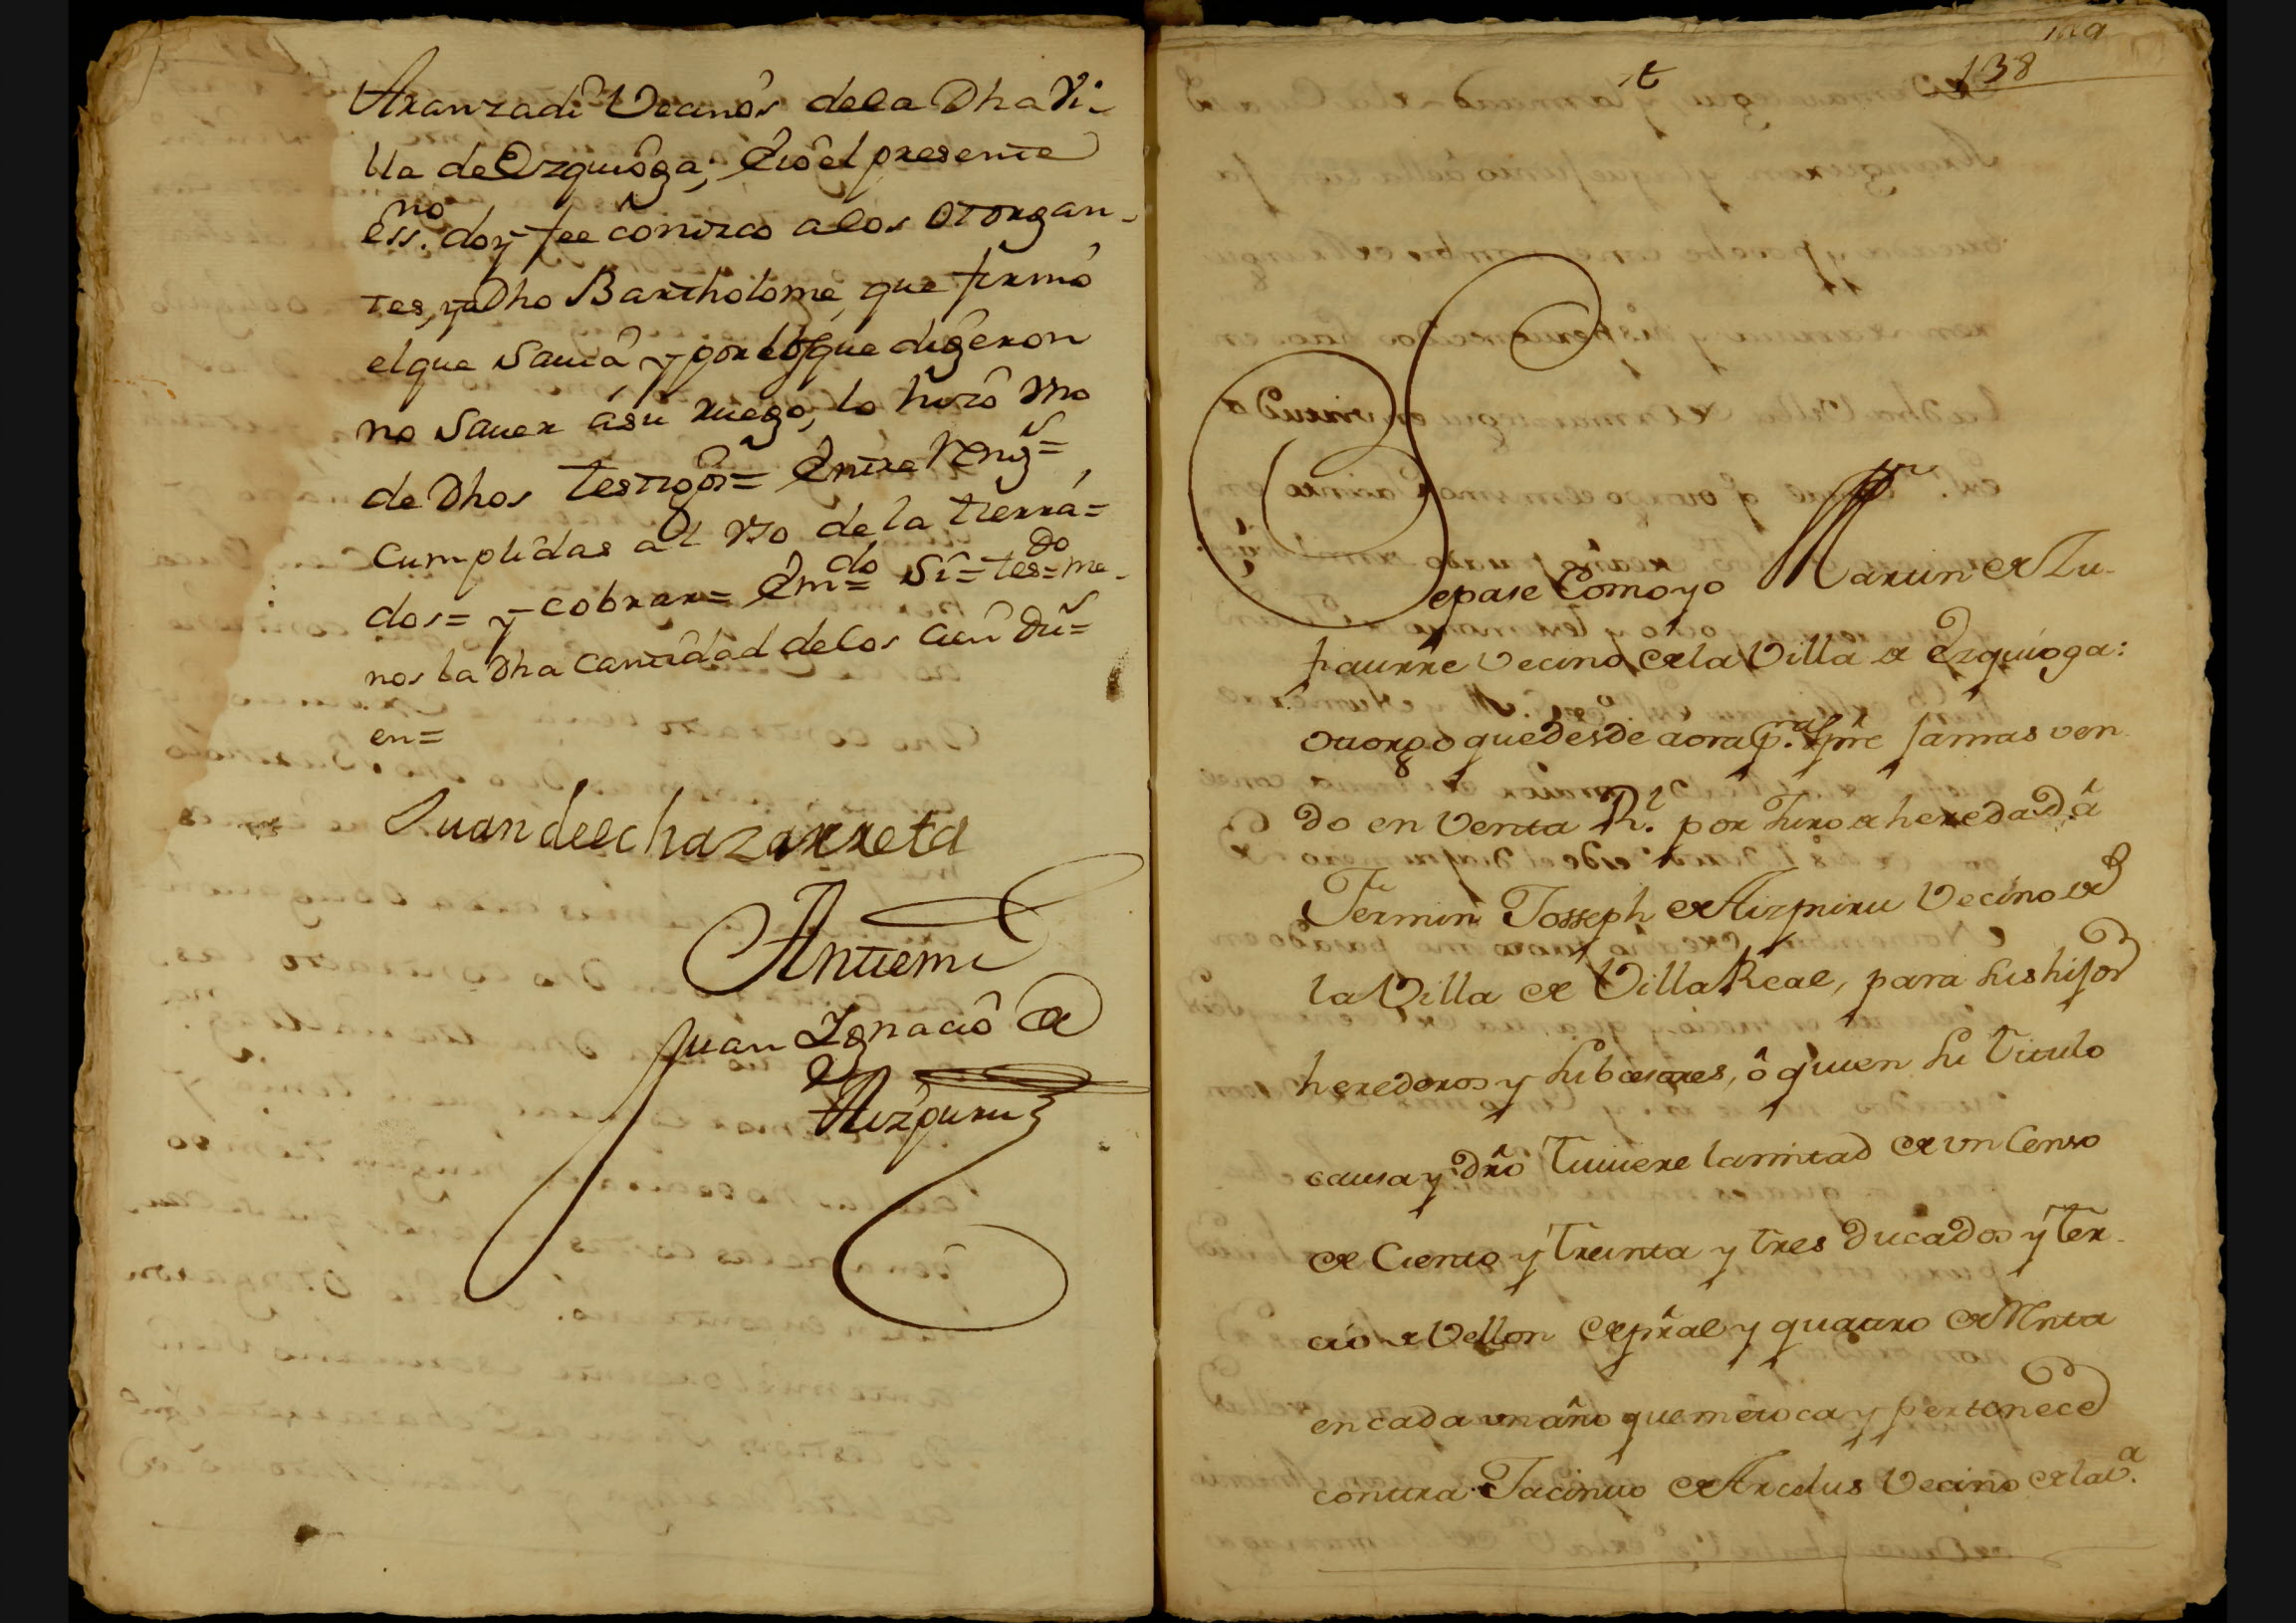 Aranzadi Vecinos dela Dha Vi-
lla de Ezquioga; È io el presente
ess.no doy fee conozco alos otorgan-
tes, y a Dho Bartholome, que firmò
el que Savia y por los que digeron
no Saver ásu ruego, lo hizo vno
de Dhos testigos= Entre Reng.s=
cumplidas al vso de la tierra=
dos= y cobrar= Em.do= Si= tes.do= me-
nos la Dha cantidad delos cien Du.s=
en=
Juan de echazarreta
Antemi
Juan Ignacio de
Aizpuru
t
138
Sepase Como yo Martin de Yu-
paurre Vecino de la Villa de Ezquioga:
otorgo que desde aora p.ra Spre Jamas ven
do en Venta Rl. por Juro de heredad, â
Fermin Josseph de Aizpuru Vecino de
la Villa de Villa Real, para sus hijos
herederos y subcesores, ô quien su titulo
causa y dro tuuiere la mitad de vn Censo
de Ciento y treinta y tres ducados y ter-
cio de Vellon de pral y quatro de Renta
en cada vn año que me toca y pertenece
contra Jacinto de Arcelus Vecino de la v.a